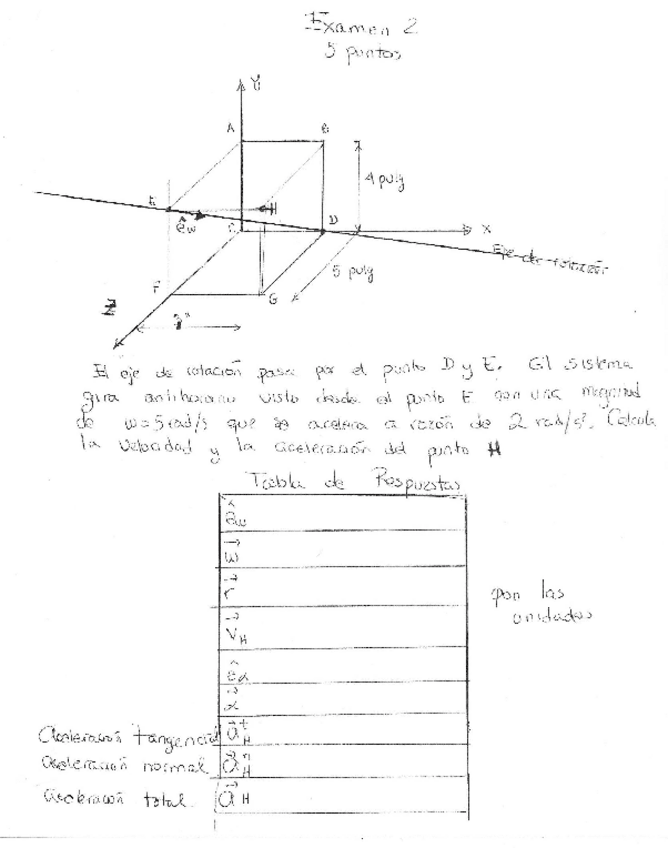 Examen 2
5 puntos
Y
A
B
4 pulg
E
H
êw
C
D
X
Eje de rotación
5 pulg
F
G
Z
3"
El eje de rotación pasa por el punto D y E. El sistema
gira antihorario visto desde el punto E con una magnitud
de w=5 rad/s que se acelera a razón de 2 rad/s². Calcula
la velocidad y la aceleración del punto H
Tabla de Respuestas
êw
w
r
pon las
unidades
V H
êα
α
Aceleración tangencial a t H
aceleración normal a n H
aceleración total a H